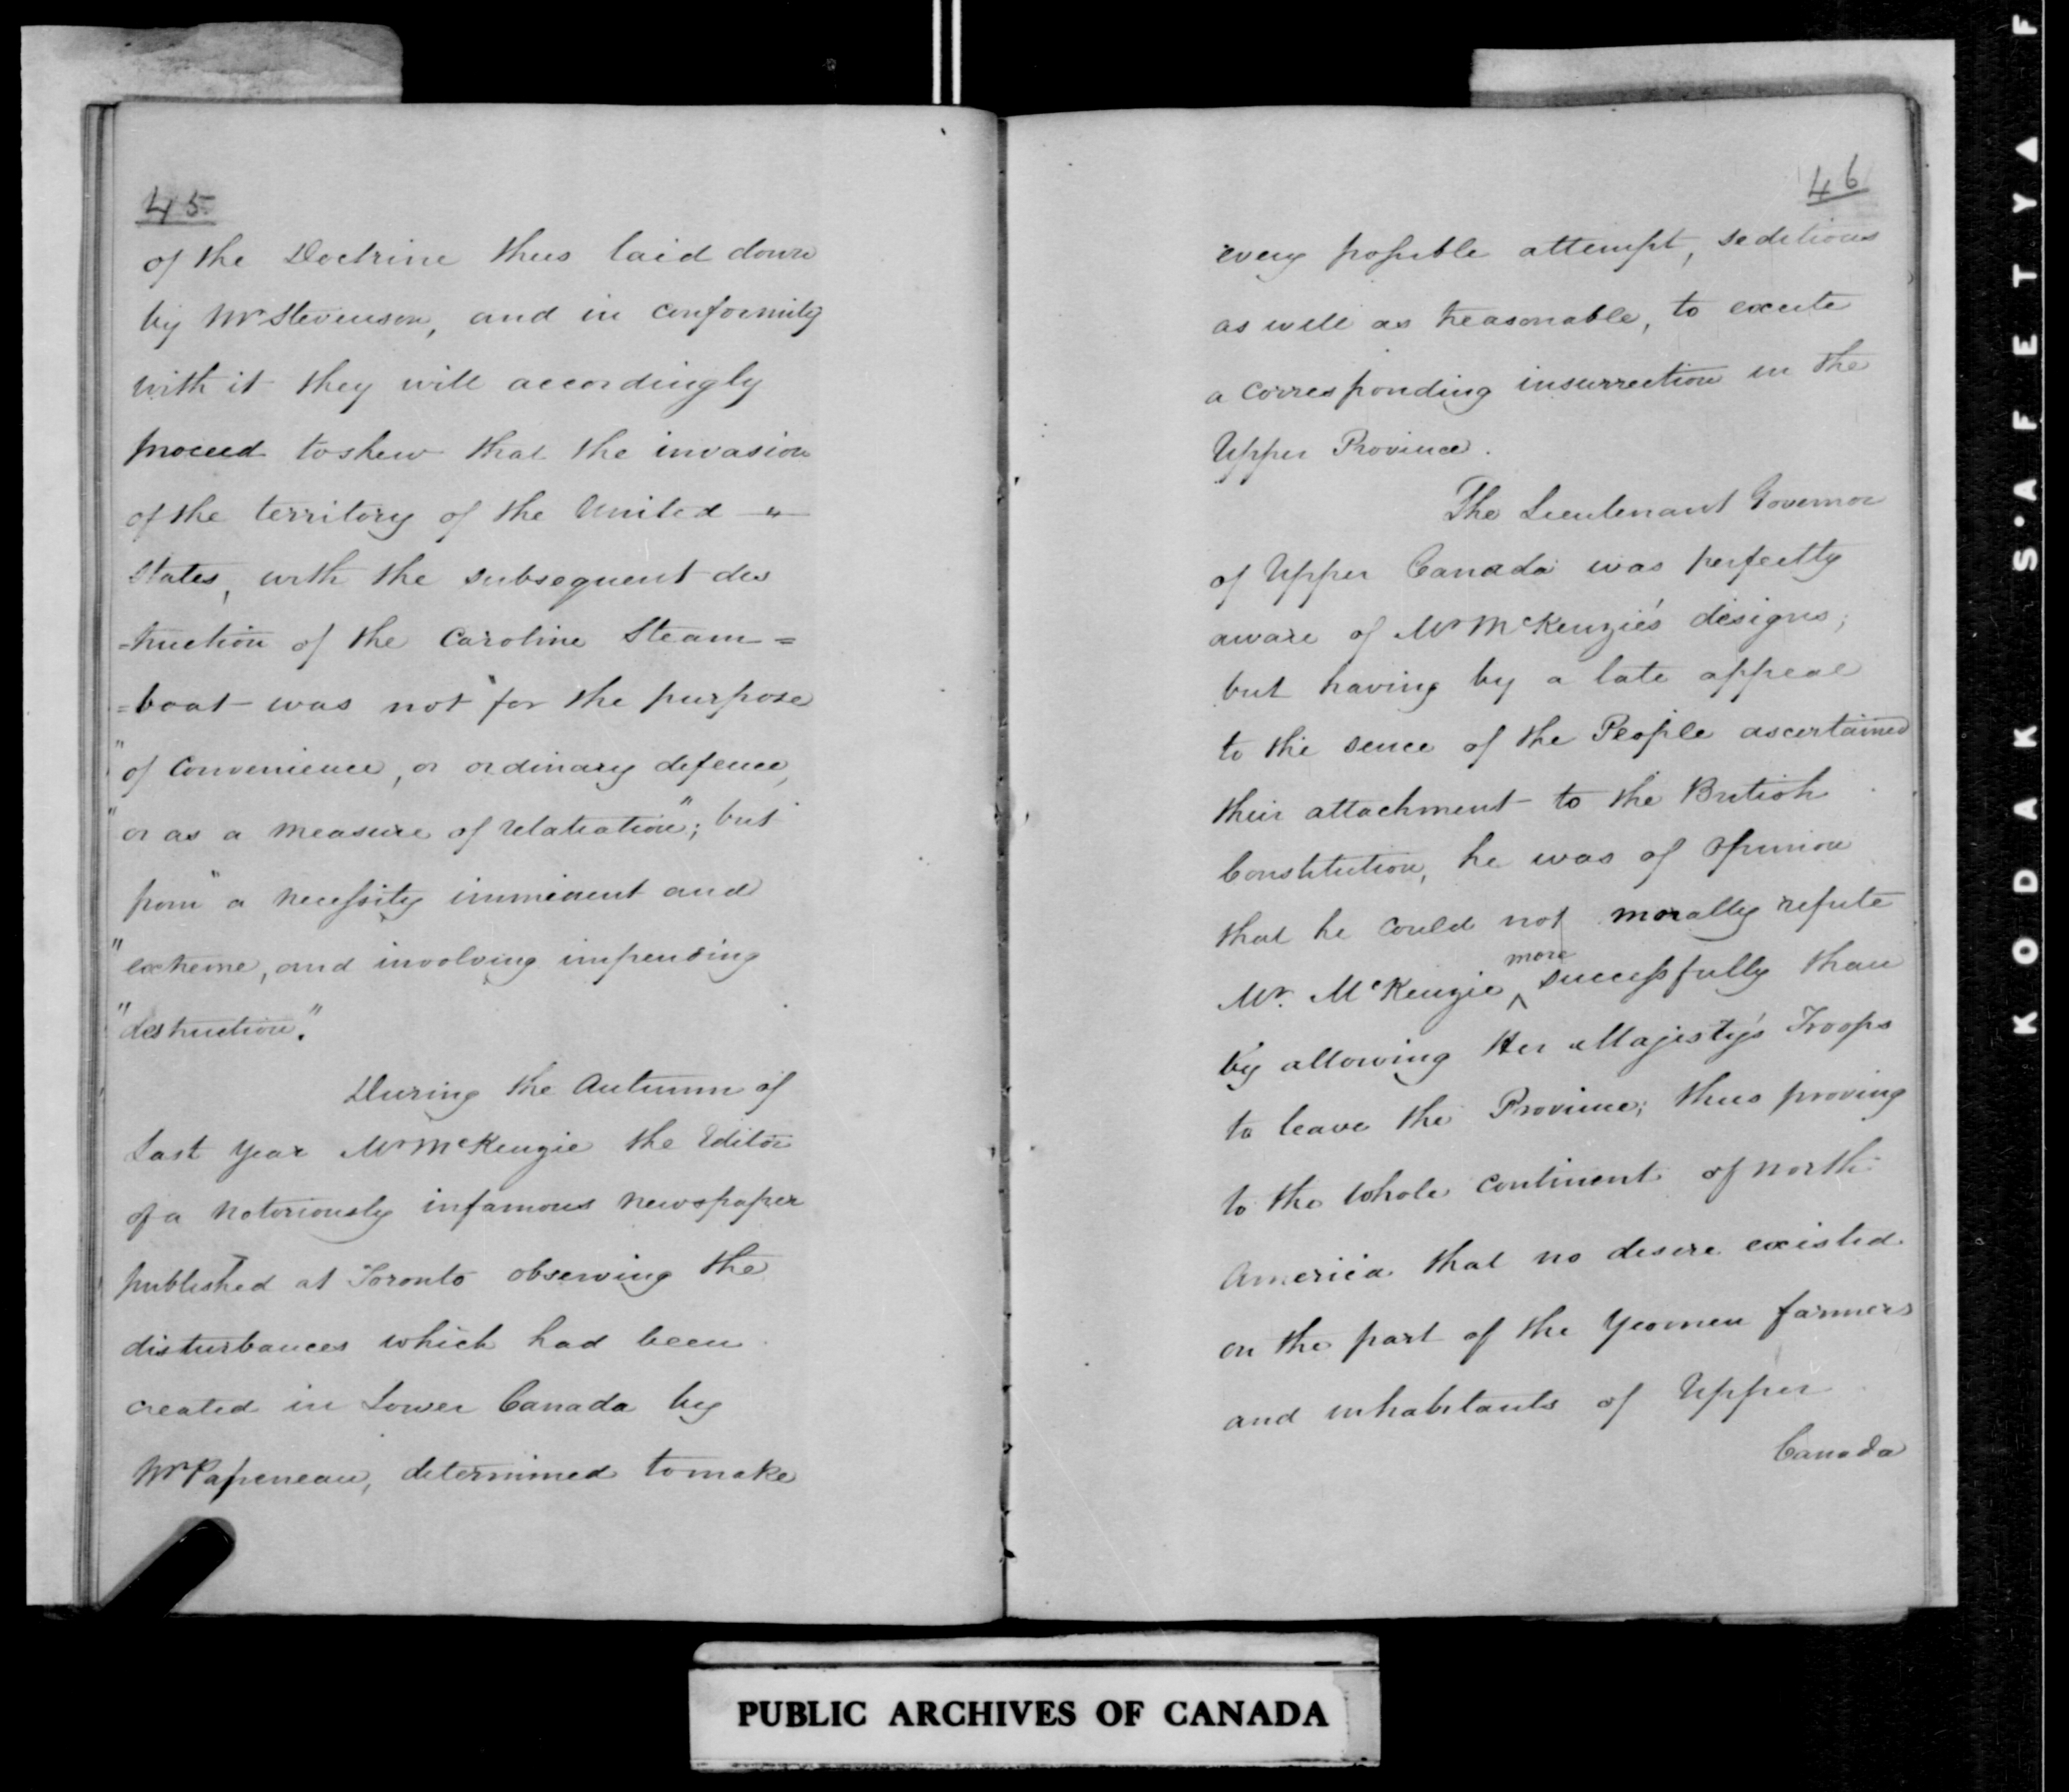 45
of the Doctrine thus laid down
by Mr Stevenson, and in conformity
with it they will accordingly
proceed to shew that the invasion
of the territory of the United
States, with the subsequent des
=truction of the Caroline Steam=
=boat was not "for the purpose
"of Convenience, or ordinary defence,
"or as a measure of retaliation"; but
from "a necessity imminent and
"extreme, and involving impending
"destruction."
During the Autumn of
last year Mr McKenzie the Editor
of a notoriously infamous newspaper
published at Toronto observing the
disturbances which had been
created in Lower Canada by
Mr Papeneau, determined to make
46
every possible attempt, seditious
as well as treasonable, to excite
a corresponding insurrection in the
Upper Province.
The Lieutenant Governor
of Upper Canada was perfectly
aware of Mr McKenzie's designs;
but having by a late appeal
to the sence of the People ascertained
their attachment to the British
Constitution, he was of opinion
that he could not morally refute
Mr. McKenzie more successfully than
by allowing Her Majesty's Troops
to leave the Province; thus proving
to the whole continent of north
America that no desire existed
on the part of the Yeomen farmers
and inhabitants of Upper
Canada
PUBLIC ARCHIVES OF CANADA
KODAK S·A F E T Y ▲ F